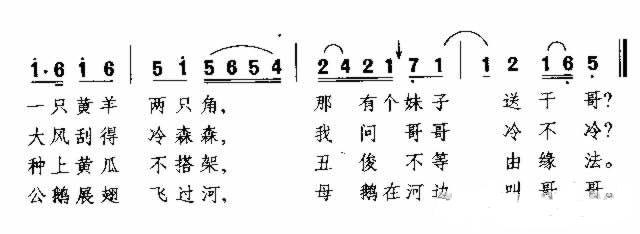 1·6 1 6 | 5 1 5654 | 2421 7 1 | 1 2 16 5 ‖
一只黄羊 两只角， 那 有个妹子 送干 哥？
大风刮得 冷森森， 我 问哥哥 冷不 冷？
种上黄瓜 不搭架， 丑 俊不等 由缘 法。
公鹅展翅 飞过河， 母 鹅在河边 叫哥 哥